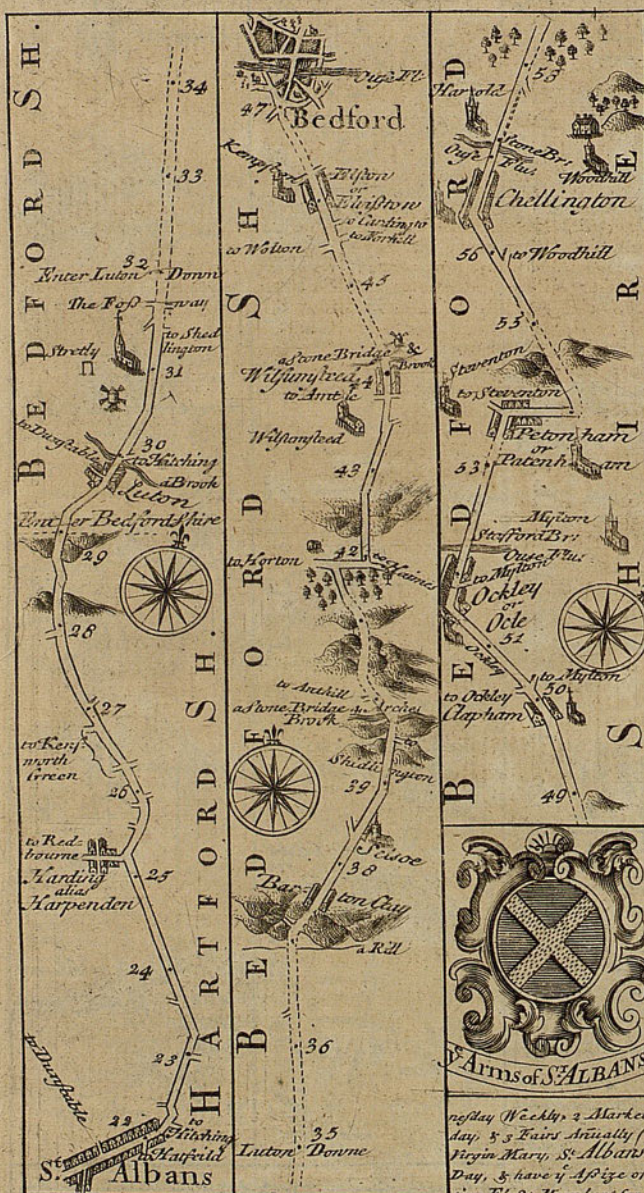 BEDFORD SH.
34
33
32
Enter Luton Down
The Foss way
Stretly
to Shed
lington
31
30
to Dunstable
to Hitching
a Brook
Luton
Enter Bedfordshire
29
28
27
to Kens
worth
Green
26
to Red-
bourne
Harding
alias
Harpenden
25
24
23
to Dunstable
22
to
Hitching
to Hatfeild
St. Albans
HARTFORD SH.
Ouse Fl:
47
Bedford
Kempston
Elston
or
Elvistow
to Cardington
to Wotton
45
a Stone Bridge &
Brook
Wilsumsteed
to Amt
Wilstomsteed
43
42
to Horton
to Haines
to Anthill
a Stone Bridge 4 Arches
Brook
to
Shidlington
39
38
Bar-
ton Clay
a Rill
36
35
Luton Downe
BEDFORD SH.
58
Harold
Stone Br:
Ouse
Flu:
Woodhill
Chellington
56
to Woodhill
Steventon
to Steventon
Petonham
or
Patenham
53
Mylton
Stafford Br:
Ouse Flu:
to Mylton
Ockley
or
Ocle
51
Ockley
to Mylton
50
to Ockley
Clapham
49
BEDFORD
SHIRE
ye Arms of St. ALBANS
nesday Weekly, 2 Market
day, & 3 Fairs Anually
Virgin Mary, St. Albans
Day, & have ye Assize of